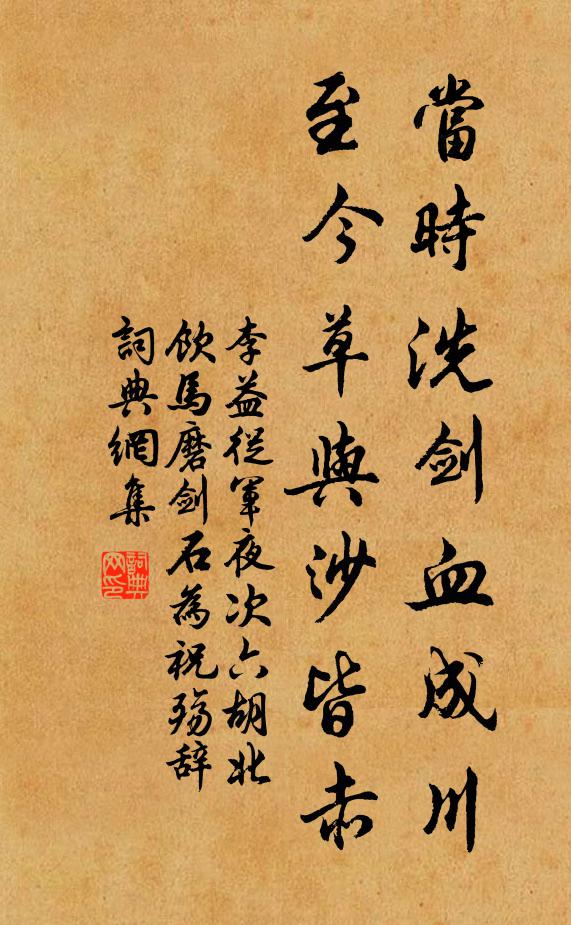 當時洗劍血成川
至今草與沙皆赤
李益從軍夜次六胡北
飲馬磨劍石為祝殤辭
詞典網集
詞典网印